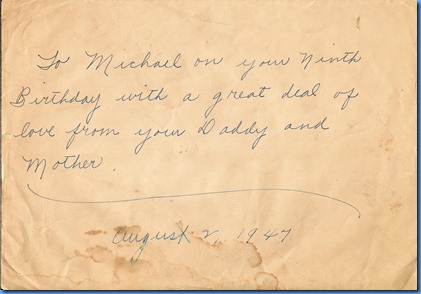 To Michael on your Ninth
Birthday with a great deal of
love from your Daddy and
Mother.
August 2, 1947